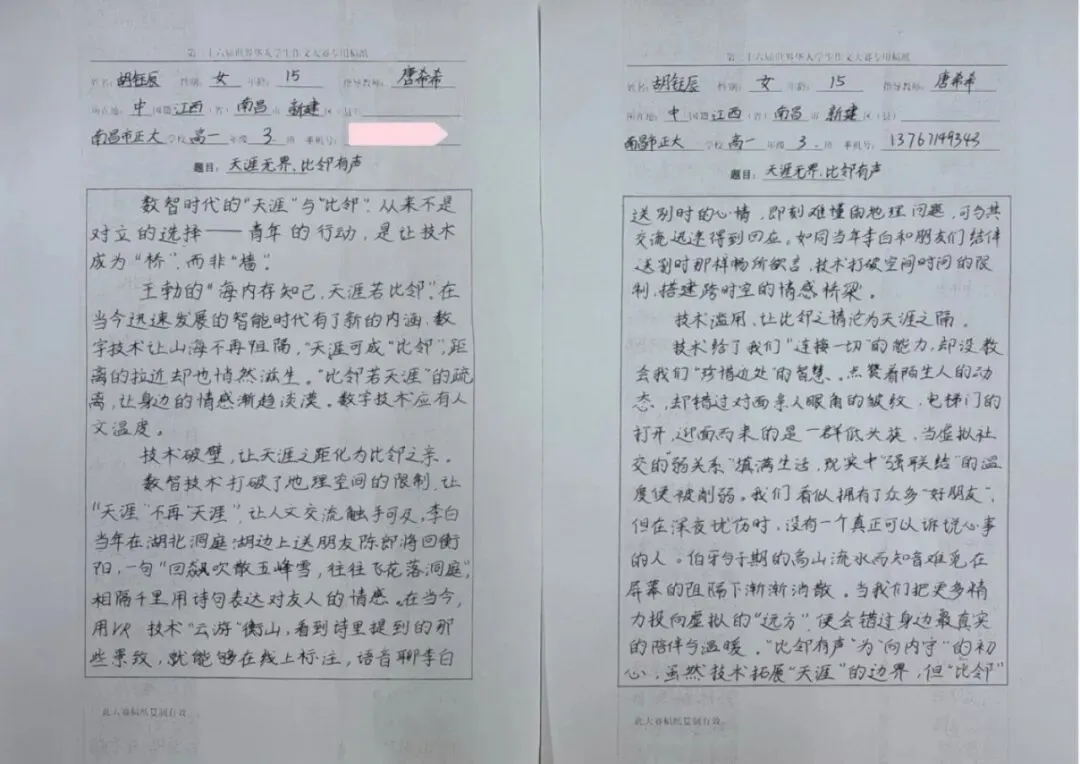 第二十六届世界华人学生作文大赛专用稿纸
姓名：胡钰辰 性别：女 年龄：15 指导教师：唐希希
所在地：中 国籍 江西（省）南昌 市 新建 区（县）
南昌市正大 学校 高一 年级 3 班 手机号：
题目：天涯无界，比邻有声
数智时代的“天涯”与“比邻”，从来不是
对立的选择——青年的行动，是让技术
成为“桥”，而非“墙”。
王勃的“海内存知己，天涯若比邻”，在
当今迅速发展的智能时代有了新的内涵，数
字技术让山海不再阻隔，“天涯可成“比邻”，距
离的拉近却也悄然滋生。“比邻若天涯”的疏
离，让身边的情感渐趋淡漠。数字技术应有人
文温度。
技术破壁，让天涯之距化为比邻之亲。
数智技术打破了地理空间的限制，让
“天涯”不再“天涯”，让人文交流触手可及，李白
当年在湖北洞庭湖边上送朋友陈郎将回衡
阳，一句“回飙吹散五峰雪，往往飞花落洞庭”，
相隔千里用诗句表达对友人的情感。在当今，
用VR 技术“云游”衡山，看到诗里提到的那
些景致，就能够在线上标注，语音聊李白
此大赛稿纸复制有效。
第二十六届世界华人学生作文大赛专用稿纸
姓名：胡钰辰 性别：女 年龄：15 指导教师：唐希希
所在地：中 国籍 江西（省）南昌 市 新建 区（县）
南昌市正大 学校 高一 年级 3 班 手机号：13767149343
题目：天涯无界，比邻有声
送别时的心情，即刻难懂的地理问题，可与其
交流迅速得到回应。如同当年李白和朋友们结伴
送别时那样畅所欲言，技术打破空间时间的限
制，搭建跨时空的情感桥梁。
技术滥用，让比邻之情沦为天涯之隔。
技术给了我们“连接一切”的能力，却没教
会我们“珍惜近处”的智慧。点赞着陌生人的动
态，却错过对面亲人眼角的皱纹，电梯门的
打开，迎面而来的是一群低头族，当虚拟社
交的“弱关系”填满生活，现实中“强联结”的温
度便被削弱。我们看似拥有了众多“好朋友”，
但在深夜忧伤时，没有一个真正可以诉说心事
的人。伯牙与子期的高山流水而知音难觅在
屏幕的阻隔下渐渐消散。当我们把更多精
力投向虚拟的“远方”，便会错过身边最真实
的陪伴与温暖。“比邻有声”为“向内守”的初
心，虽然技术拓展“天涯”的边界，但“比邻”
此大赛稿纸复制有效。